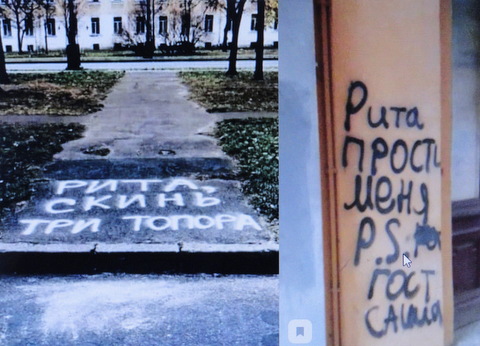 РИТА,
СКИНЬ
ТРИ ТОПОРА
Рита
ПРОСТИ
меня
P.S.
ГОСТ
САША